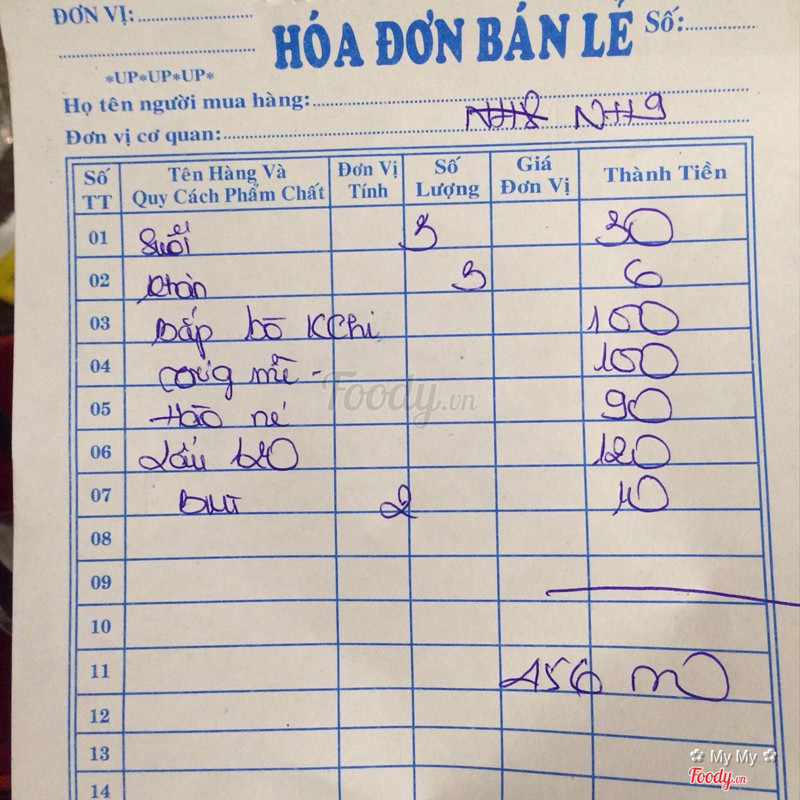 ĐƠN VỊ:
HÓA ĐƠN BÁN LẺ
Số:
*UP*UP*UP*
Họ tên người mua hàng:
NH8 NH9
Đơn vị cơ quan:
Số TT Tên Hàng Và Quy Cách Phẩm Chất Đơn Vị Tính Số Lượng Giá Đơn Vị Thành Tiền
01 Suối 3 30
02 khăn 3 6
03 Bắp bò KChi 100
04 mề - 100
05 Hào né 90
06 Lẩu 120
07 BMI 2 10
08
09
10
11 456
12
13
14
Foody.vn
My My
Foody.vn